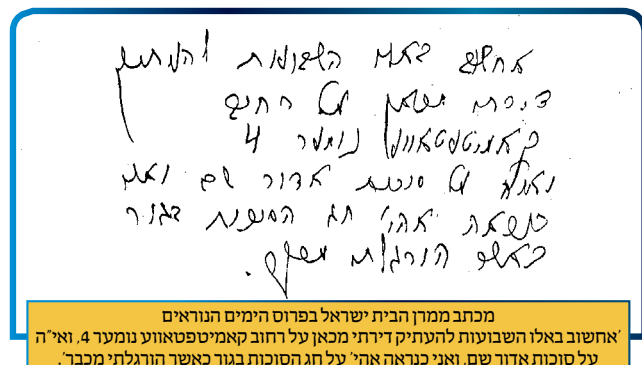 אחשוב באלו השבועות להעתיק
דירתי מכאן על רחוב
קאמיטפטאווע נומער 4
ואי"ה על סוכות אדור שם ואני
כנראה אהי' חג הסוכות בגור
כאשר הורגלתי מכבר.
מכתב ממרן הבית ישראל בפרוס הימים הנוראים
'אחשוב באלו השבועות להעתיק דירתי מכאן על רחוב קאמיטפטאווע נומער 4, ואי"ה
על סוכות אדור שם, ואני כנראה אהי' על חג הסוכות בגור כאשר הורגלתי מכבר'.